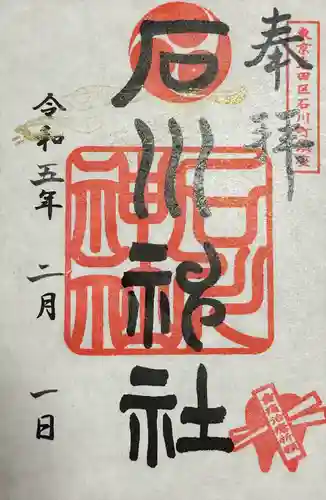 奉拝
東京大田区石川町鎮座
石川神社
石川神社
令和五年 二月 一日